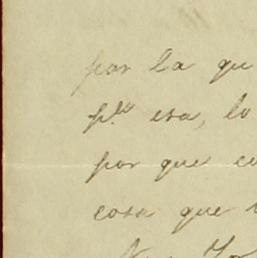 por la qu
p.ª esa, lo
por que
cosa que